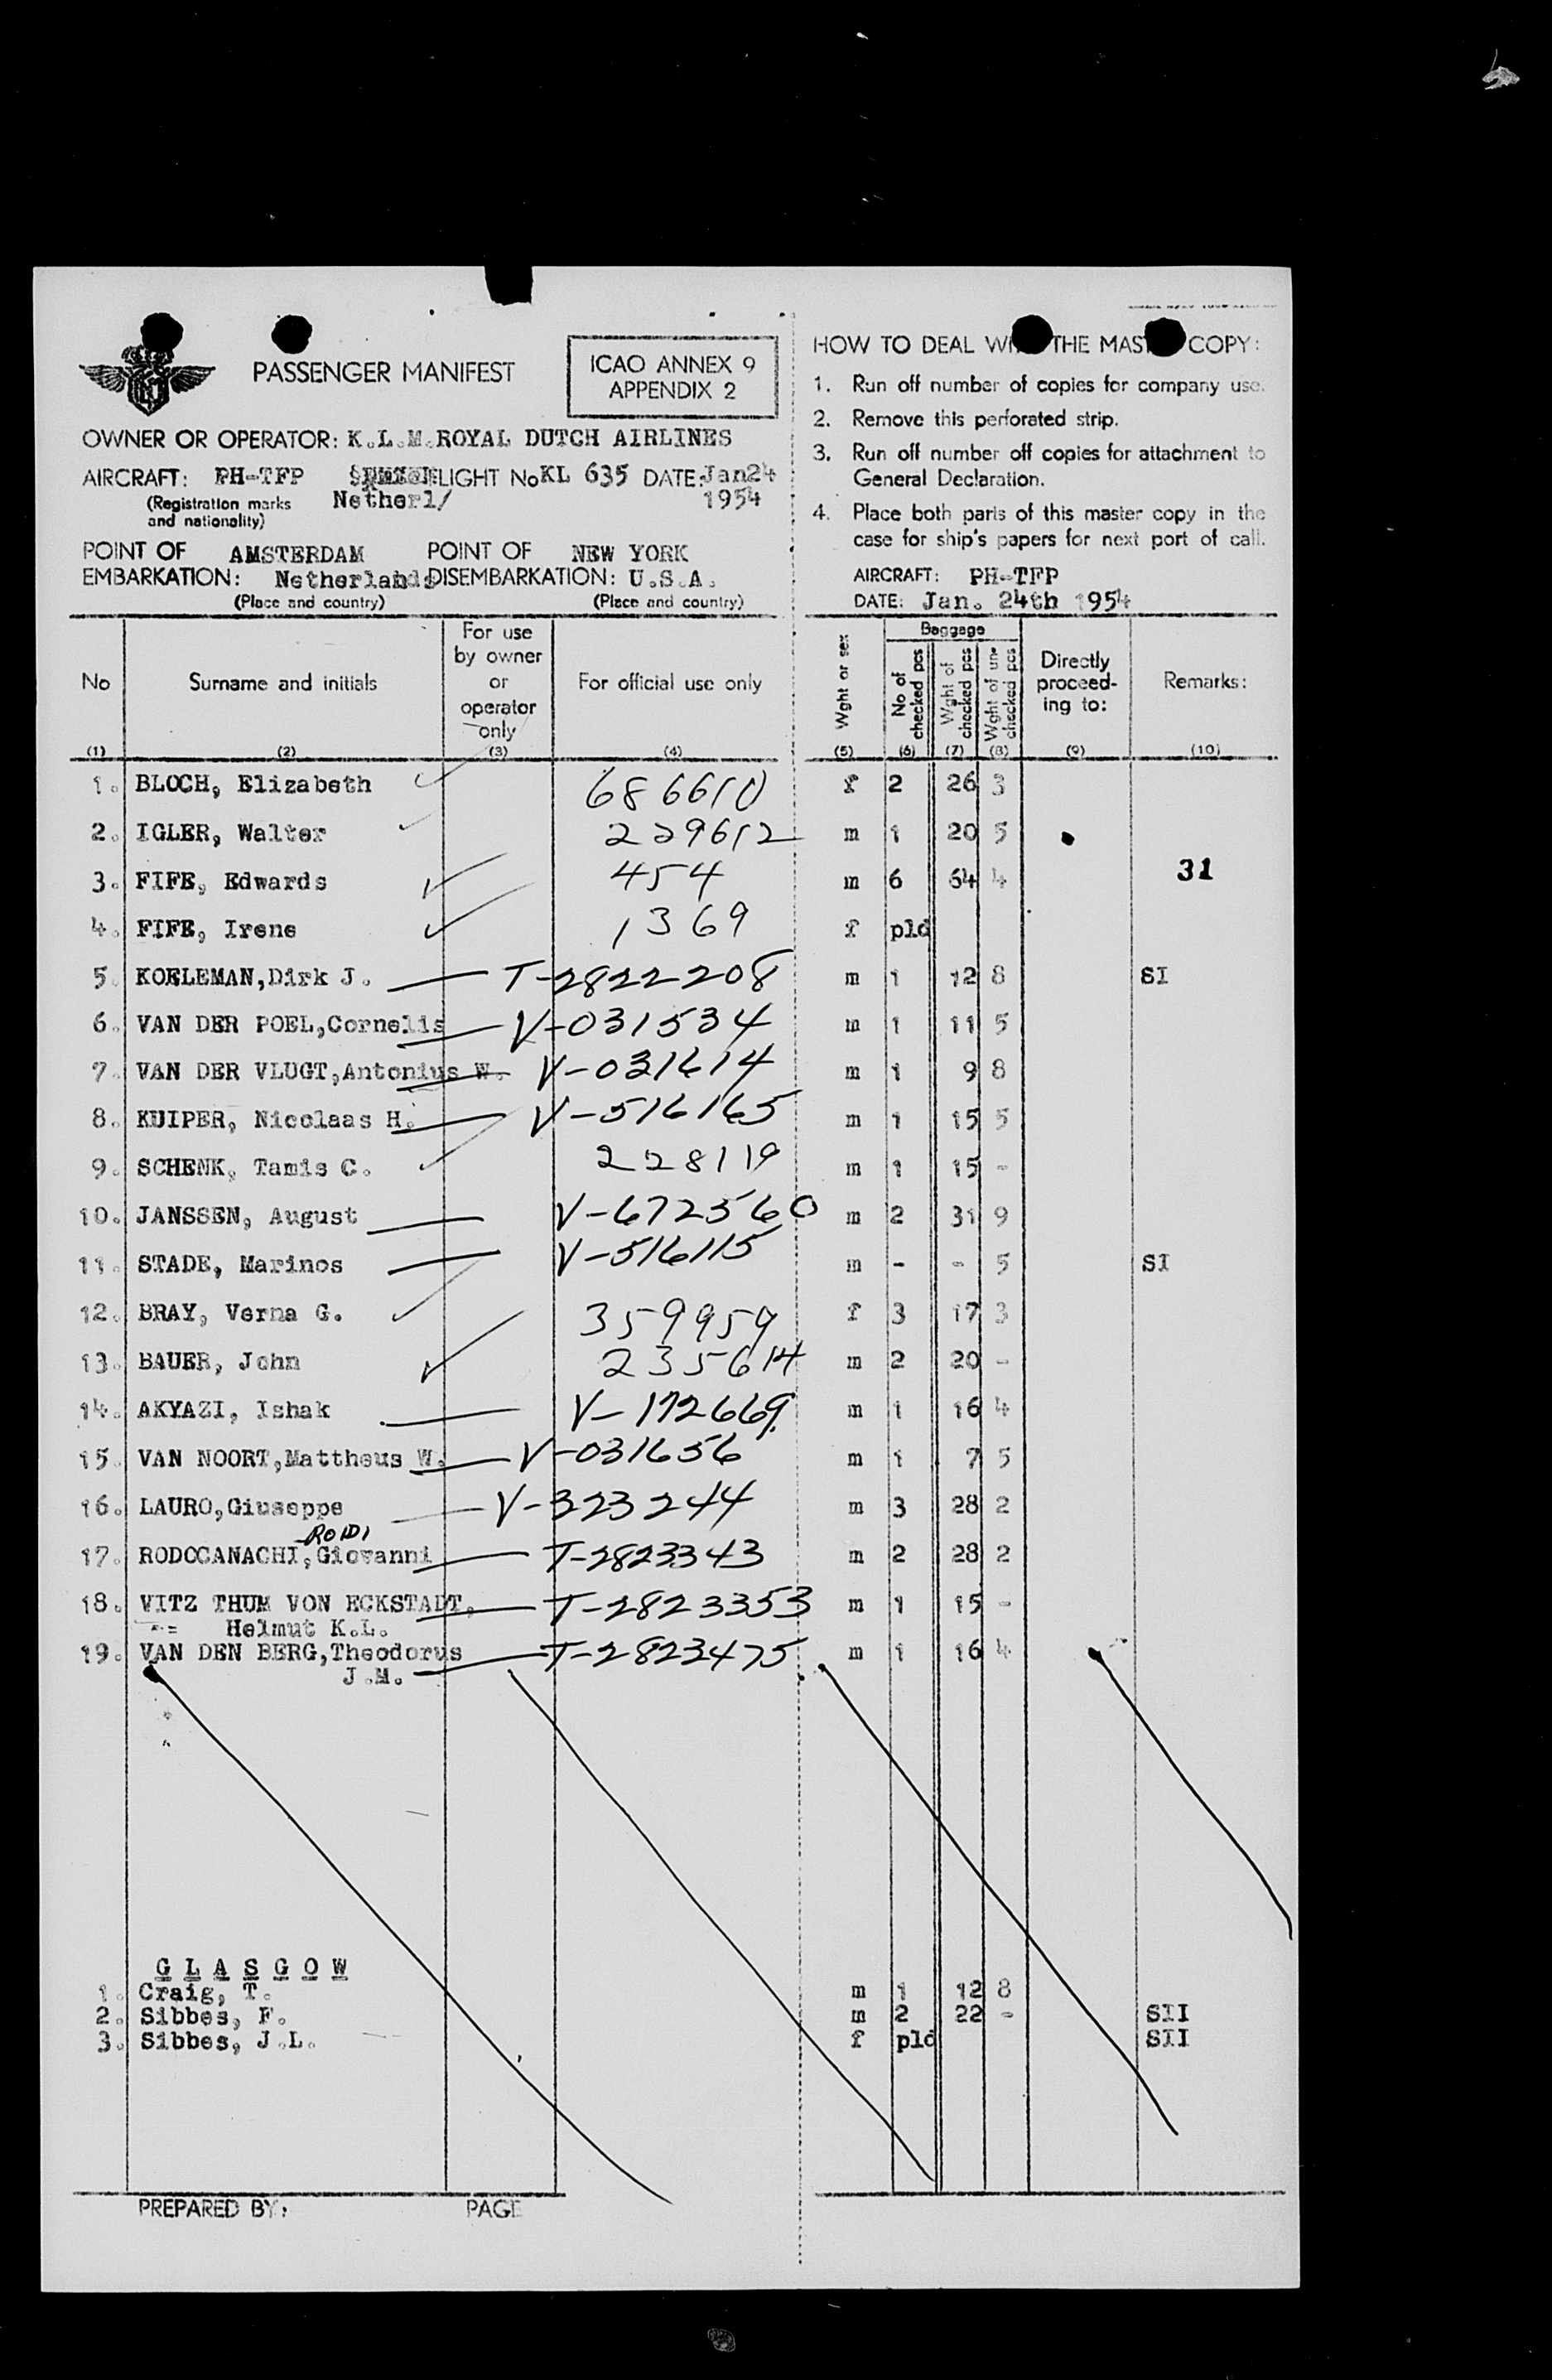 PASSENGER MANIFEST
ICAO ANNEX 9
APPENDIX 2
OWNER OR OPERATOR: K.L.M. ROYAL DUTCH AIRLINES
AIRCRAFT: PH-TFP FLIGHT No KL 635 DATE: Jan24
(Registration marks Netherl/ 1954
and nationality)
POINT OF AMSTERDAM POINT OF NEW YORK
EMBARKATION: Netherlands DISEMBARKATION: U.S.A.
(Place and country) (Place and country)
HOW TO DEAL THE COPY:
1. Run off number of copies for company use.
2. Remove this perforated strip.
3. Run off number off copies for attachment to
General Declaration.
4. Place both parts of this master copy in the
case for ship's papers for next port of call.
AIRCRAFT: PH-TFP
DATE: Jan. 24th 1954
No Surname and initials For use by owner or operator only For official use only Wght or sex Baggage No of checked pcs Wght of checked pcs Wght of un-checked pcs Directly proceed-ing to: Remarks:
(1) (2) (3) (4) (5) (6) (7) (8) (9) (10)
1. BLOCH, Elizabeth 686610 f 2 26 3
2. IGLER, Walter 229612 m 1 20 5
3. FIFE, Edwards 454 m 6 64 4 31
4. FIFE, Irene 1369 f pld
5. KOELEMAN,Dirk J. T-2822208 m 1 12 8 SI
6. VAN DER POEL,Cornelis V-031534 m 1 11 5
7. VAN DER VLUGT,Antonius W. V-031614 m 1 9 8
8. KUIPER, Nicolaas H. V-516165 m 1 15 5
9. SCHENK, Tamis C. 228119 m 1 15 -
10. JANSSEN, August V-672560 m 2 31 9
11. STADE, Marinos V-516115 m - - 5 SI
12. BRAY, Verna G. 359959 f 3 17 3
13. BAUER, John 235614 m 2 20 -
14. AKYAZI, Ishak V-172669 m 1 16 4
15. VAN NOORT,Mattheus W. V-031656 m 1 7 5
16. LAURO,Giuseppe V-323244 m 3 28 2
ROIDI
17. RODOCANACHI,Giovanni T-2823343 m 2 28 2
18. VITZ THUM VON ECKSTADT, T-2823353 m 1 15 -
Helmut K.L.
19. VAN DEN BERG,Theodorus T-2823475 m 1 16 4
J.M.
GLASGOW
1. Craig, T. m 1 12 8
2. Sibbes, F. m 2 22 - SII
3. Sibbes, J.L. f pld SII
PREPARED BY: PAGE